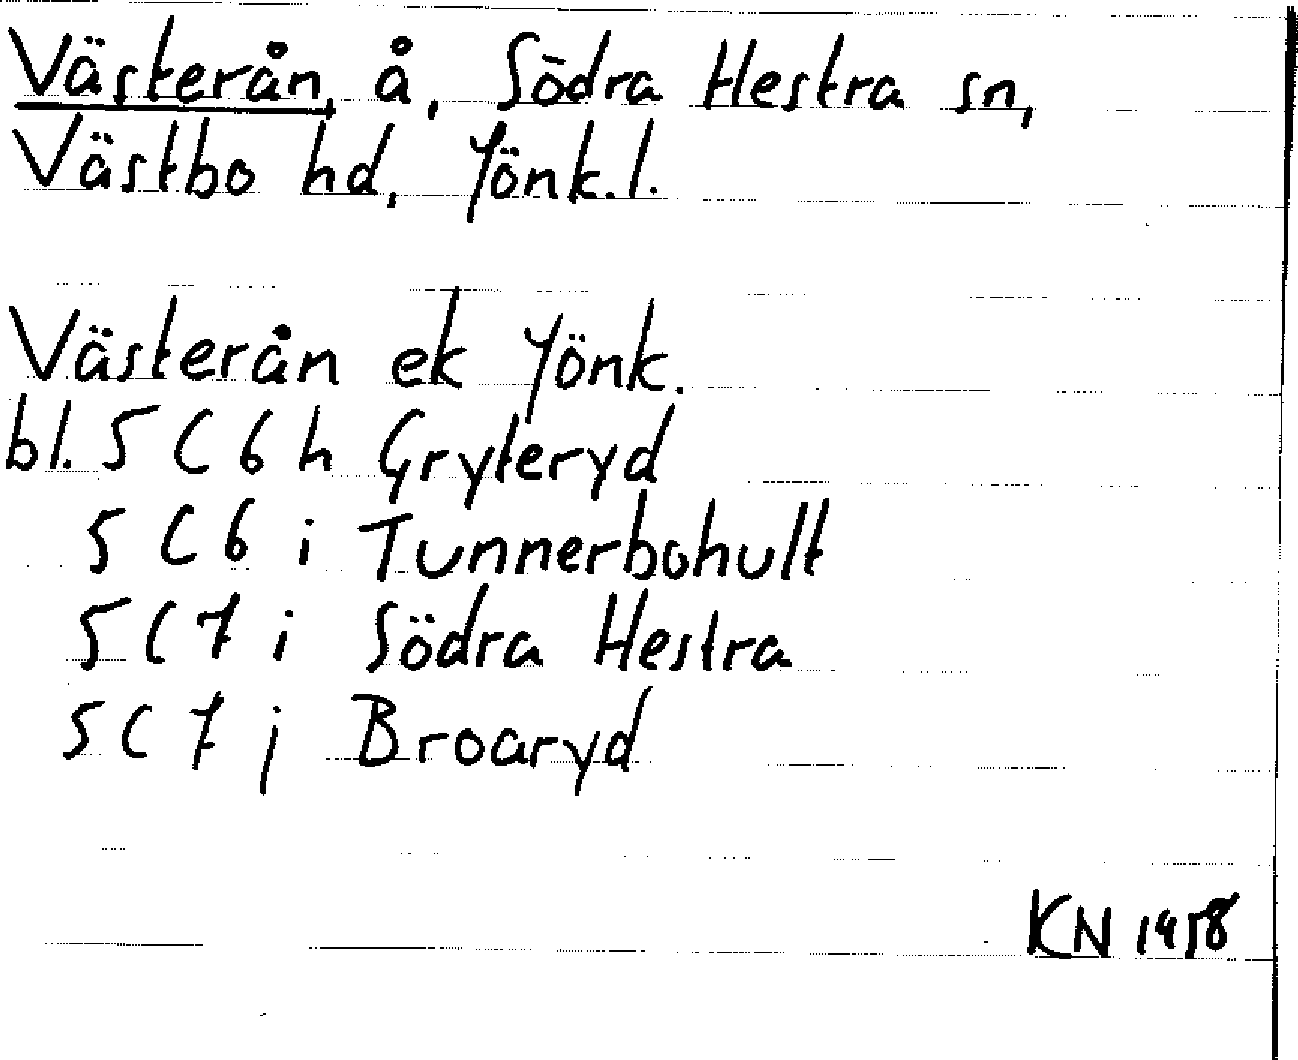 Västerån, å, Södra Hestra sn,
Västbo hd, Jönk.l.
Västerån ek Jönk.
bl. 5 C 6 h Gryteryd
5 C 6 i Tunnerbohult
5 C 7 i Södra Hestra
5 C 7 j Broaryd
KN 1958